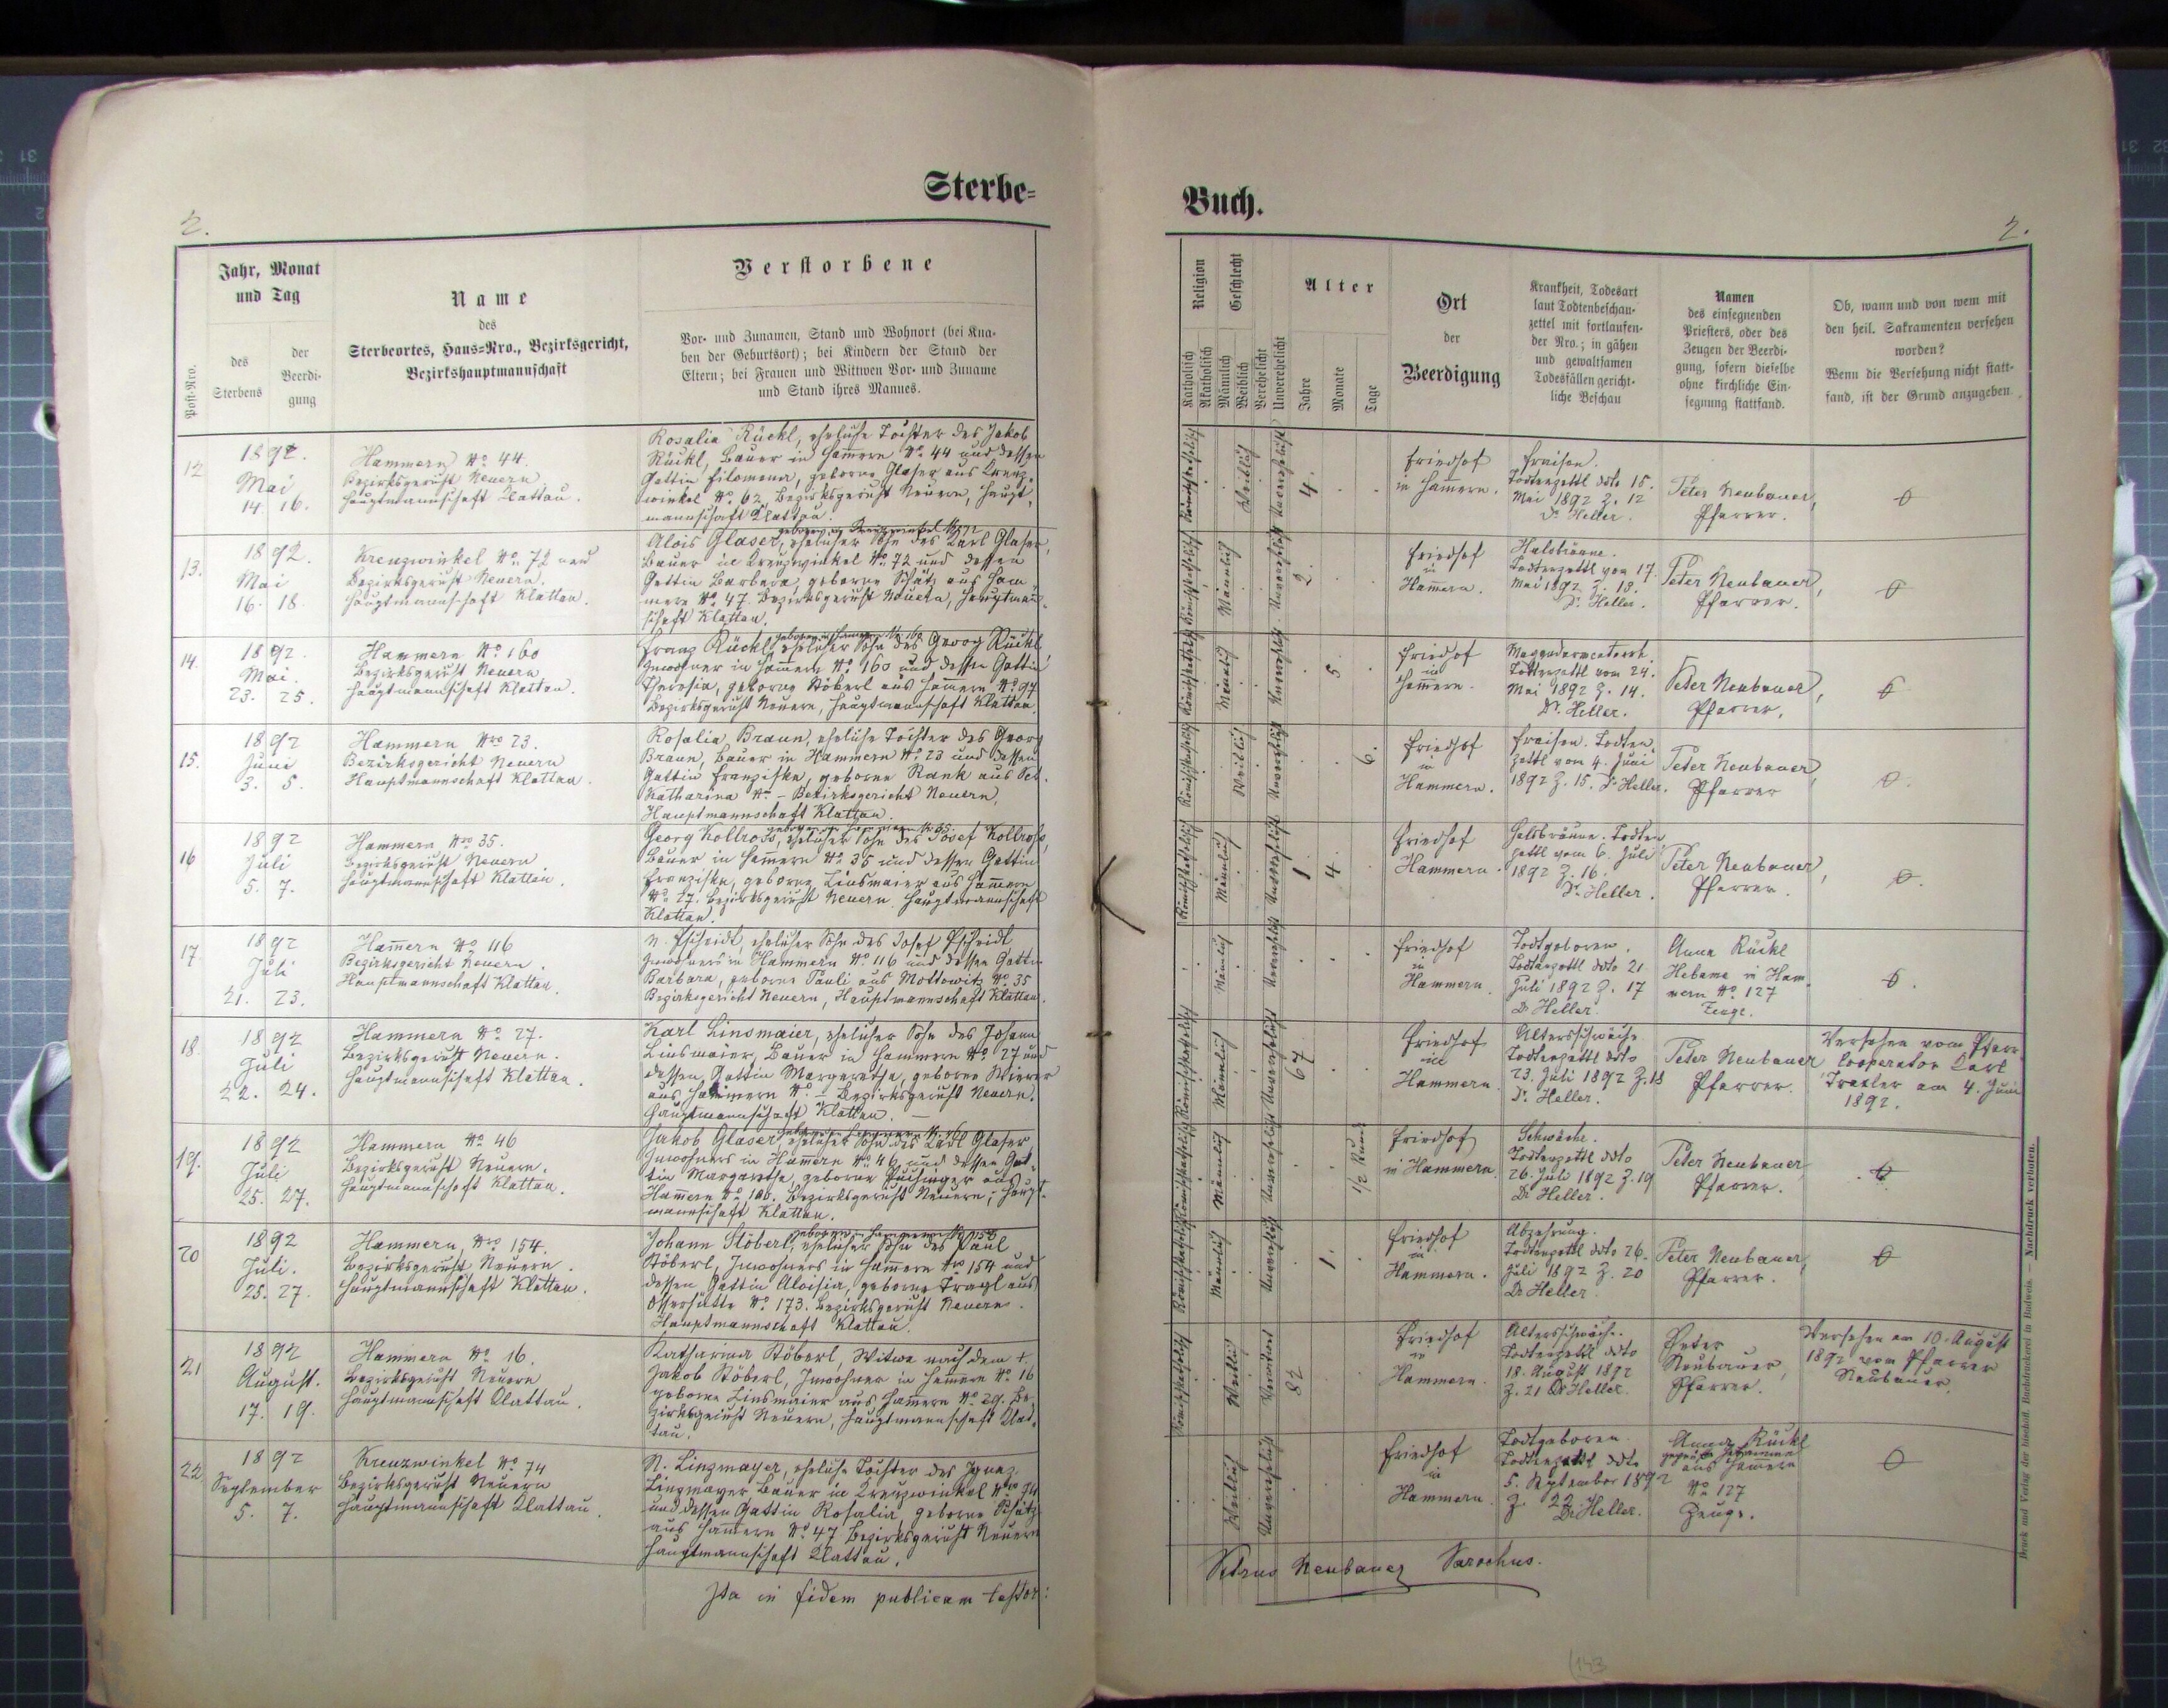 Sterbe-
2.
Jahr, Monat
und Tag
Post-Nro.
des
Sterbens
der
Beerdi-
gung
Name
des
Sterbeortes, Haus-Nro., Bezirksgericht,
Bezirkshauptmannschaft
Verstorbene
Vor- und Zunamen, Stand und Wohnort (bei Kna-
ben der Geburtsort); bei Kindern der Stand der
Eltern; bei Frauen und Wittwen Vor- und Zuname
und Stand ihres Mannes.
12
1892.
Mai
14. 16.
Hammern No 44.
Bezirksgericht Neuern
Hauptmannschaft Klattau.
Rosalia Rückl, eheliche Tochter des Jakob
Rückl, Bauer in Hammern No 44 und dessen
Gattin Filomena, geborne Glaser aus Kreuz-
winkel No 62 Bezirksgericht Neuern, Haupt-
mannschaft Klattau.
13.
1892.
Mai
16. 18.
Kreuzwinkel No 72
Bezirksgericht Neuern.
Hauptmannschaft Klattau.
geboren in Kreuzwinkel No 72
Alois Glaser, ehelicher Sohn des Karl Glaser,
Bauer in Kreuzwinkel No 72 und dessen
Gattin Barbara, geborne Schätz aus Ham-
mern No 47. Bezirksgericht Neuern, Hauptmann-
schaft Klattau.
14.
1892.
Mai.
23. 25.
Hammern No 160
Bezirksgericht Neuern
Hauptmannschaft Klattau.
geboren in Hammern No 160
Franz Rückl, ehelicher Sohn des Georg Rückl
Inwohner in Hammern No 160 und dessen Gattin
Theresia, geborne Stöberl aus Hammern No 97
Bezirksgericht Neuern, Hauptmannschaft Klattau.
15.
1892
Juni
3. 5.
Hammern Nro 23.
Bezirksgericht Neuern
Hauptmannschaft Klattau.
Rosalia Braun, eheliche Tochter des Georg
Braun, Bauer in Hammern No 23 und dessen
Gattin Franziska, geborne Rank aus Sct.
Katharina No – Bezirksgericht Neuern,
Hauptmannschaft Klattau.
16
1892
Juli
5. 7.
Hammern Nro 35.
Bezirksgericht Neuern
Hauptmannschaft Klattau.
geboren in Hammern No 35.
Georg Kollross, ehelicher Sohn des Josef Kollross,
Bauer in Hammern No 35 und dessen Gattin
Franziska, geborne Linsmaier aus Hammern
No 27. Bezirksgericht Neuern, Hauptmannschaft
Klattau.
17.
1892
Juli
21. 23.
Hammern No 116
Bezirksgericht Neuern.
Hauptmannschaft Klattau.
N. Pscheidt, ehelicher Sohn des Josef Pscheidt
Inwohners in Hammern No 116 und dessen Gattin
Barbara, geborne Pauli aus Mottowitz No 35
Bezirksgericht Neuern, Hauptmannschaft Klattau.
18.
1892
Juli
22. 24.
Hammern No 27.
Bezirksgericht Neuern.
Hauptmannschaft Klattau.
Karl Linsmaier, ehelicher Sohn des Johann
Linsmaier, Bauer in Hammern No 27 und
dessen Gattin Margaretha, geborne Wierer
aus Hammern No – Bezirksgericht Neuern.
Hauptmannschaft Klattau. –
19.
1892
Juli
25. 27.
Hammern No 46
Bezirksgericht Neuern.
Hauptmannschaft Klattau.
geboren in Hammern No 46
Jakob Glaser, ehelicher Sohn des Karl Glaser,
Inwohners in Hammern No 46 und dessen Gat-
tin Margaretha, geborne aus
Hammern No 106. Bezirksgericht Neuern, Haupt-
mannschaft Klattau.
20
1892
Juli.
25. 27.
Hammern, Nro 154.
Bezirksgericht Neuern.
Hauptmannschaft Klattau.
geboren in Hammern No 154
Johann Stöberl, ehelicher Sohn des Paul
Stöberl, Inwohners in Hammern Nro 154 und
dessen Gattin Aloisia, geborne Tragl aus
Osserhütte No 173. Bezirksgericht Neuern.
Hauptmannschaft Klattau.
21
1892
August.
17. 19.
Hammern No 16.
Bezirksgericht Neuern
Hauptmannschaft Klattau.
Katharina Stöberl, Witwe nach dem †
Jakob Stöberl, Inwohner in Hammern No 16
geborne Linsmaier aus Hammern No 29. Be-
zirksgericht Neuern, Hauptmannschaft Klat-
tau.
22
1892
September
5. 7.
Kreuzwinkel No 74
Bezirksgericht Neuern
Hauptmannschaft Klattau.
N. Linzmayer, eheliche Tochter des Ignaz
Linzmayer Bauer in Kreuzwinkel Nro 74
und dessen Gattin Rosalia, geborne Schätz
aus Hammern No 47 Bezirksgericht Neuern
Hauptmannschaft Klattau.
Ita in fidem publicam testor:
Buch.
2.
Religion
Katholisch
Akatholisch
Geschlecht
Männlich
Weiblich
Verehelicht
Unverehelicht
Alter
Jahre
Monate
Tage
Ort
der
Beerdigung
Krankheit, Todesart
laut Todtenbeschau-
zettel mit fortlaufen-
der Nro.; in gähen
und gewaltsamen
Todesfällen gericht-
liche Beschau
Namen
des einsegnenden
Priesters, oder des
Zeugen der Beerdi-
gung, sofern dieselbe
ohne kirchliche Ein-
segnung stattfand.
Ob, wann und von wem mit
den heil. Sakramenten versehen
worden?
Wenn die Versehung nicht statt-
fand, ist der Grund anzugeben.
Römischkatholisch
Weiblich
Unverehelicht
4.
Friedhof
in Hammern.
Fraisen.
Todtenzettl ddto 15.
Mai 1892 Z. 12
Dr. Heller.
Peter Neubauer,
Pfarrer.
Römischkatholisch
Männlich
Unverehelicht
2.
Friedhof
in
Hammern.
Halsbräune.
Todtenzettl vom 17.
Mai 1892 Z. 13.
Dr. Heller.
Peter Neubauer,
Pfarrer.
Römischkatholisch
Männlich
Unverehelicht
5
Friedhof
in
Hammern.
Magendarmcatarrh.
Todtenzettl vom 24.
Mai 1892 Z. 14.
Dr. Heller.
Peter Neubauer,
Pfarrer.
Römischkatholisch
Weiblich
Unverehelicht
6.
Friedhof
in
Hammern.
Fraisen. Todten-
zettl vom 4. Juni
1892 Z. 15. Dr Heller.
Peter Neubauer,
Pfarrer
Römischkatholisch
Männlich
Unverehelicht
1. 4
Friedhof
Hammern.
Halsbräune. Todten-
zettl vom 6. Juli
1892 Z. 16.
Dr. Heller.
Peter Neubauer,
Pfarrer.
Männlich
Unverehelicht
Friedhof
in
Hammern.
Todtgeboren.
Todtenzettl ddto 21
Juli 1892 Z. 17
Dr Heller.
Anna Rückl
Hebame in Ham-
mern No 127
Zeuge.
Römischkatholisch
Männlich
Unverehelicht
67
Friedhof
in
Hammern.
Altersschwäche
Todtenzettl ddto
23. Juli 1892 Z. 18
Dr. Heller.
Peter Neubauer
Pfarrer.
Versehen vom Pfarr-
Cooperator Karl
Traxler am 4. Juni
1892.
Römischkatholisch
Männlich
Unverehelicht
1/2 Stund
Friedhof
in Hammern
Schwäche.
Todtenzettl ddto
26. Juli 1892 Z. 19
Dr Heller.
Peter Neubauer,
Pfarrer.
Römischkatholisch
Männlich
Unverehelicht
1.
Friedhof
in
Hammern.
Abzehrung.
Todtenzettl ddto 26.
Juli 1892 Z. 20
Dr Heller.
Peter Neubauer,
Pfarrer.
Römischkatholisch
Weiblich
Verwitwet
82
Friedhof
in
Hammern.
Altersschwäche.
Todtenzettl ddto
18. August 1892
Z. 21 Dr Heller.
Peter
Neubauer,
Pfarrer.
Versehen am 10. August
1892 vom Pfarrer
Neubauer.
Weiblich
Unverehelicht
Friedhof
in
Hammern.
Todtgeboren
Todtenzettl ddto
5. September 1892
Z. 22.
Dr Heller.
Anna Rückl
geprüfte Hebamme
aus Hammern
No 127
Zeuge.
Petrus Neubauer Parochus.
Druck und Verlag der bischöfl. Buchdruckerei in Budweis. — Nachdruck verboten.
143